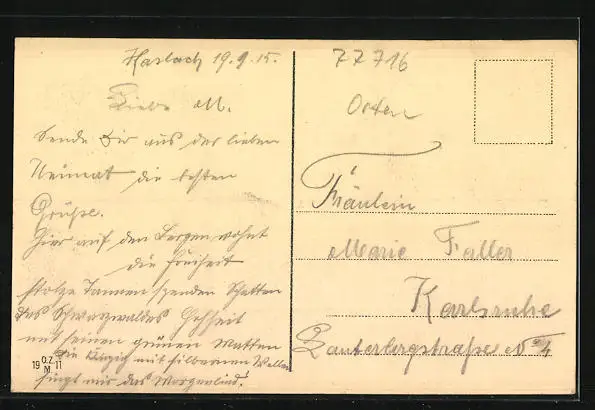 Haslach 19.9.15.
Liebe M.
Sende Dir aus der lieben
Heimat die besten
Grüße.
Hier auf den Bergen wohnt
die Freiheit
stolze Tannen spenden Schatten
des Schwarzwaldes
mit seinen grünen Matten
die Kinzig mit silbernen Wellen
singt mir das Morgenlied!
19 O.Z.M. 11
77716
Orten
Fräulein
Marie Faller
Karlsruhe
Lauterbergstraße No 4